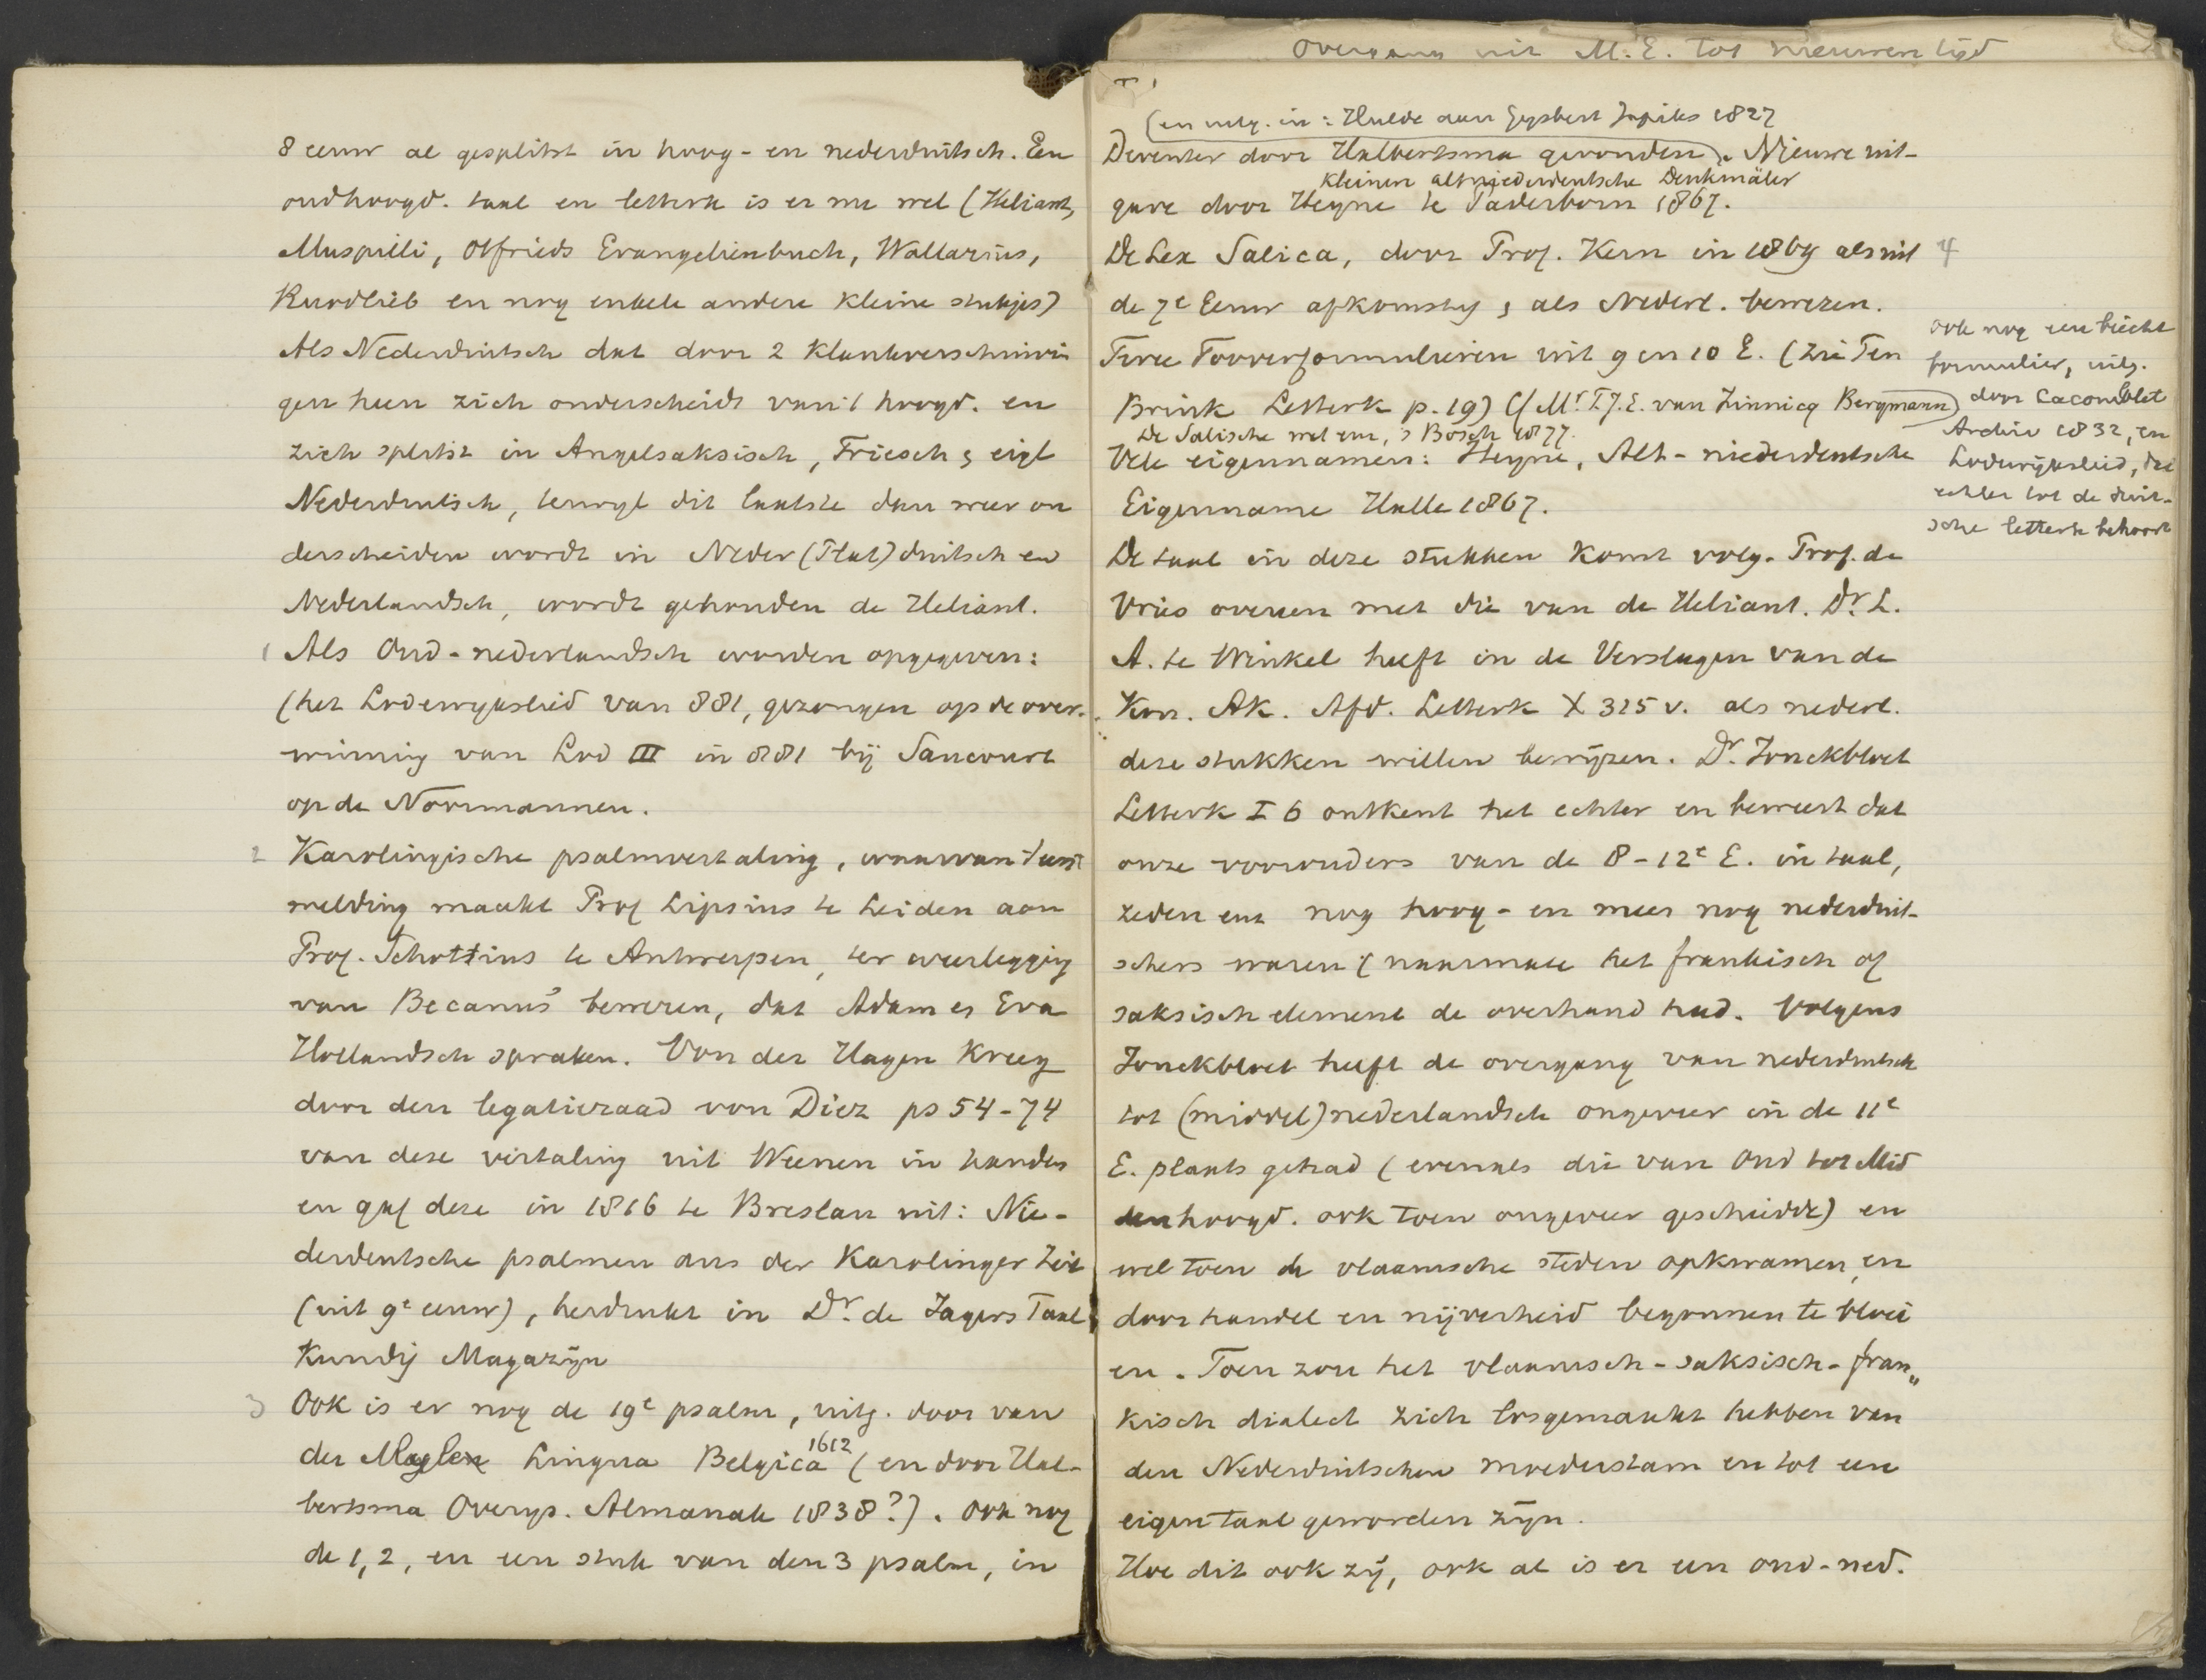 8 eeuw al gesplitst in hoog- en nederduitsch. Een
oudhoogd. taal en letterk is er nu wel (Heliant,
Muspilli, Otfrieds Evangelienbuch, Waltarius,
Ruodlieb en nog enkele andere kleine stukjes)
Als Nederduitsch dat door 2 Klankverschuivin
gen heen zich onderscheidt van 't hoogd. en
zich splitst in Angelsaksisch, Friesch & eigl
Nederduitsch, terwijl dit laatste dan weer on
derscheiden wordt in Neder (Plat) duitsch en
Nederlandsch, wordt gehouden de Heliant.
1 Als Oud-nederlandsch worden opgegeven:
(het Lodewykslied van 881, gezongen op de over-
winning van Lod III in 881 bij Saucourt
op de Noormannen.
2 Karolingische psalmvertaling, waarvan 't eerst
melding maakt Prof Lipsius te Leiden aan
Prof. Schottius te Antwerpen, ter weerlegging
van Becanus' beweren, dat Adam en Eva
Hollandsch spraken. Von der Hagen Kreeg
door den legatieraad von Diez ps 54-74
van deze vertaling uit Weenen in handen
en gaf deze in 1816 te Breslau uit: Nie-
derdeutsche psalmen aus der Karolinger Zeit
(uit 9e eeuw), herdrukt in Dr. de Jagers Taal
Kundig Magazijn
3 Ook is er nog de 19e psalm, uitg. door van
der Mylen Lingua Belgica 1612 (en door Hal-
bertsma Overijs. Almanak 1838?). Ook nog
de 1, 2, en een stuk van den 3 psalm, in
Overgang uit M.E. tot nieuwen tijd
(en uitg. in: Hulde aan Gysbert Japiks 1827
Deventer door Halbertsma gevonden). Nieuwe uit-
Kleinere altniederdeutsche Denkmäler
gave door Heyne te Paderborn 1867.
De Lex Salica, door Prof. Kern in 1869 als uit 4
de 7e Eeuw afkomstig & als Nederl. bewezen.
Twee Tooverformulieren uit 9 en 10 E. (Zie Ten
Brink Letterk p. 19) (Mr. L.J.E. van Zinnicq Bergmann)
De Salische wet enz, 's Bosch 1877.
Vele eigennamen: Heyne, Alt-niederdeutsche
Eigenname Halle 1867.
ook nog een biecht
formulier, uitg.
door Lacomblet
Archiv 1832, en
Lodewijkslied, dat
echter tot de duit-
sche letterk behoort
De taal in deze stukken komt volg. Prof. de
Vries overeen met die van de Heliant. Dr. L.
A. te Winkel heeft in de Verslagen van de
Kon. Ak. Afd. Letterk X 325 v. als nederl.
deze stukken willen bewijzen. Dr. Jonckbloet
Letterk I 6 ontkent het echter en beweert dat
onze voorouders van de 8-12e E. in taal,
zeden enz nog hoog- en meer nog nederduit-
schers waren (naarmate het frankisch of
saksisch element de overhand had. Volgens
Jonckbloet heeft de overgang van nederduitsch
tot (middel) nederlandsch ongeveer in de 11e
E. plaats gehad (evenals die van Oud tot Mid
denhoogd. ook toen ongeveer geschiedde) en
wel toen de vlaamsche steden opkwamen en
door handel en nijverheid begonnen te bloei
en. Toen zou het vlaamsch-saksisch-fran„
kisch dialect zich losgemaakt hebben van
den Nederduitschen moederstam en tot een
eigen taal geworden zijn.
Hoe dit ook zij, ook al is er een oud-ned.